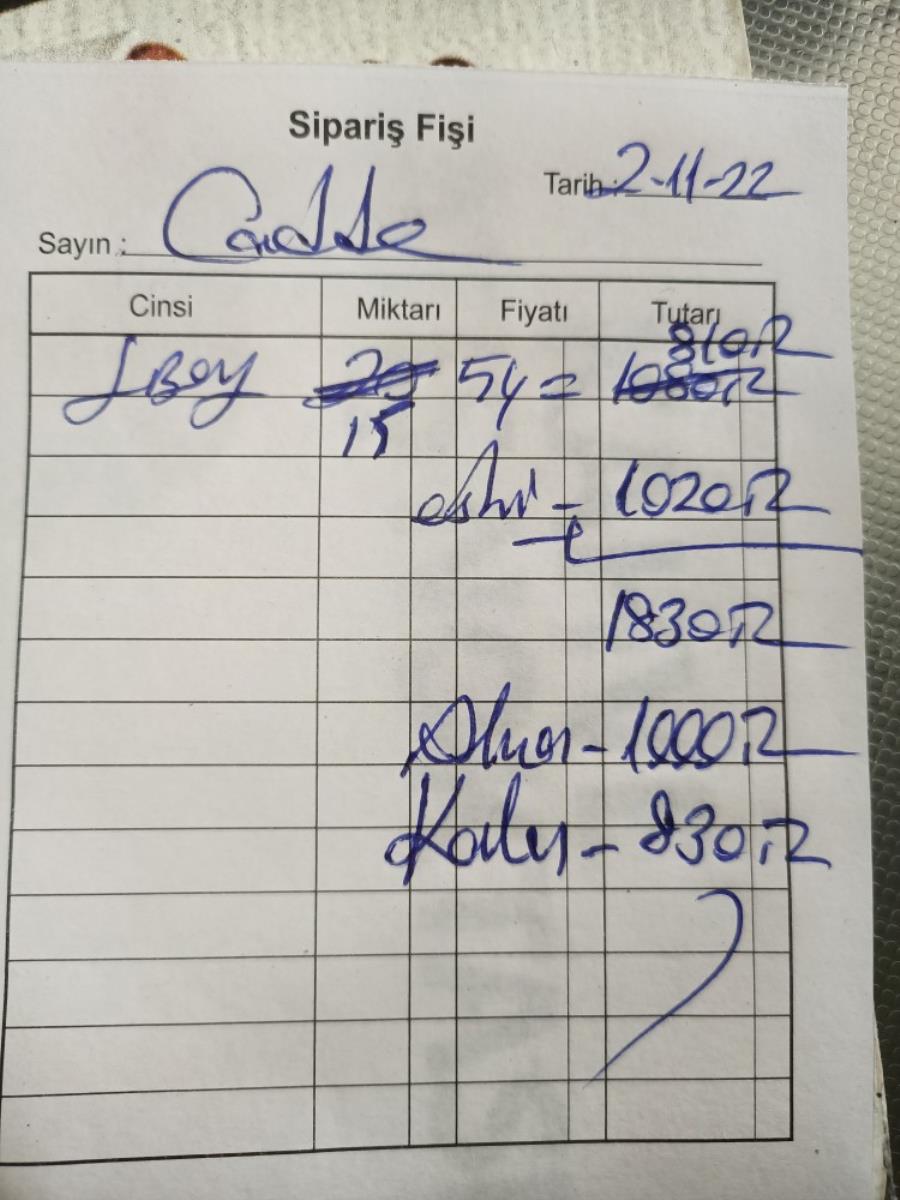 Sipariş Fişi
Tarih : 2-11-22
Sayın : Cadde
Cinsi Miktarı Fiyatı Tutarı
810
BOY 20 54 = 1080
15
eski - 1020
1830
Alınan - 1000
Kalan - 830